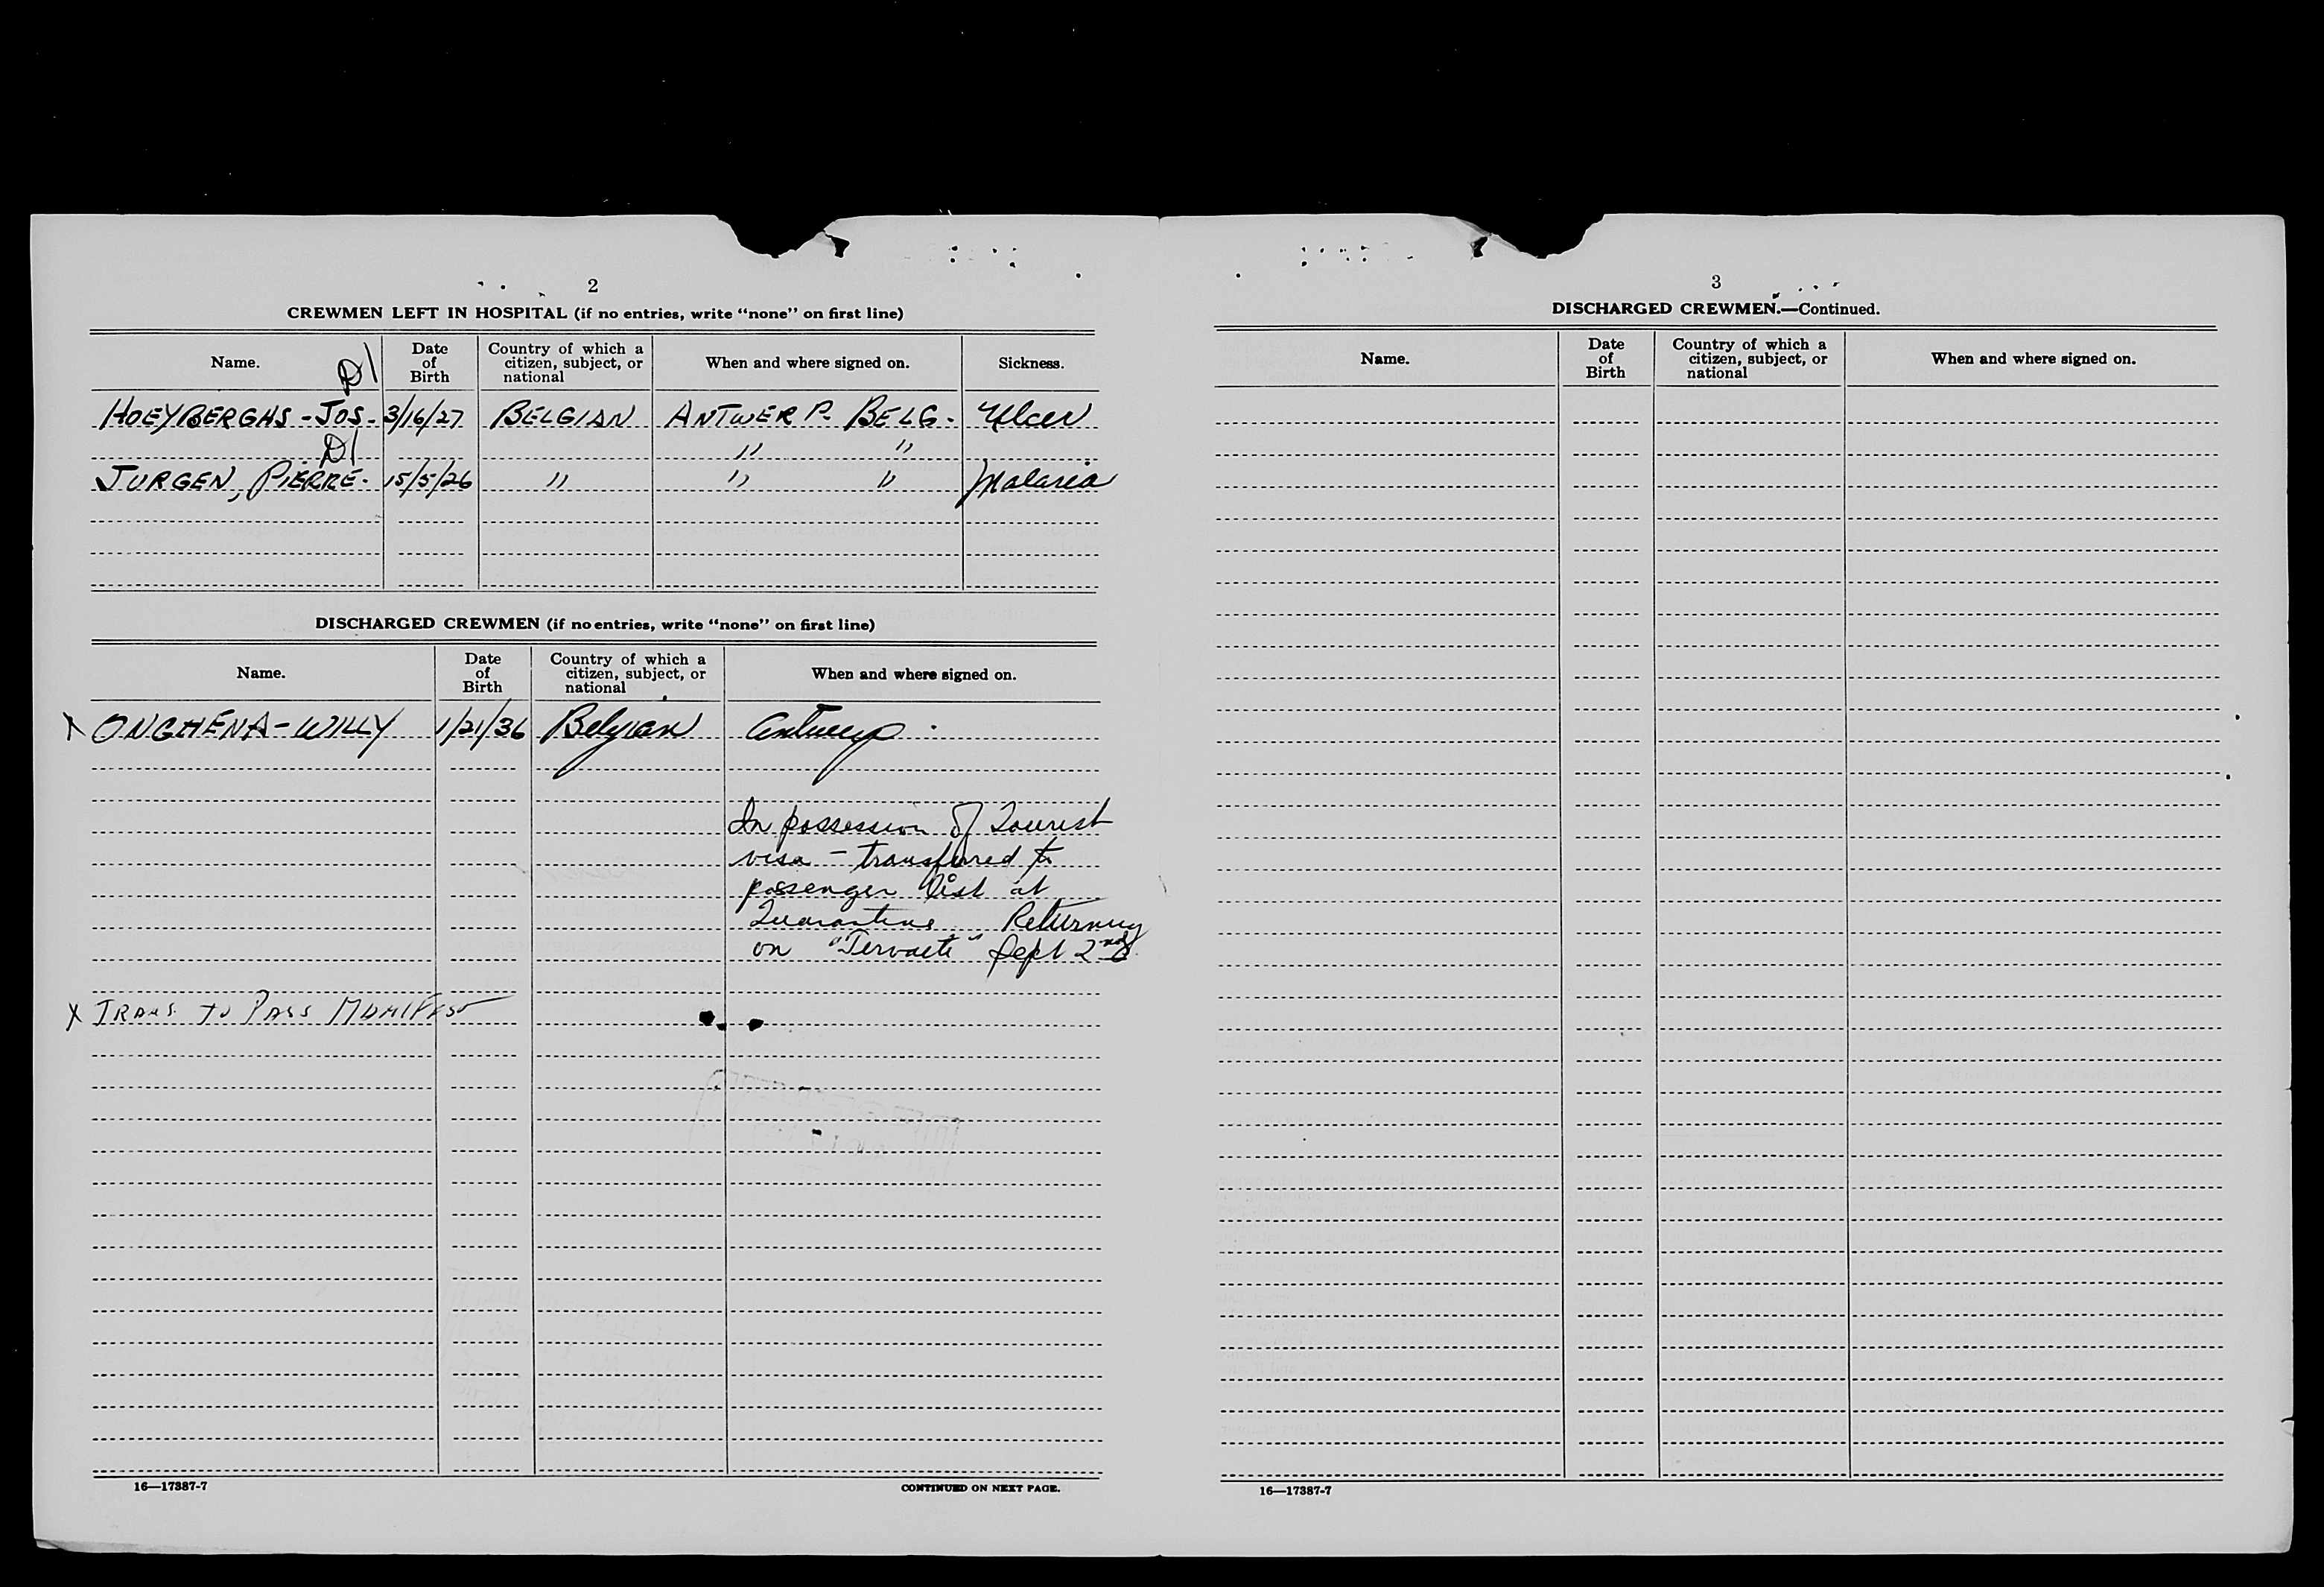 2
CREWMEN LEFT IN HOSPITAL (if no entries, write "none" on first line)
Name. Date of Birth Country of which a citizen, subject, or national When and where signed on. Sickness.
D1
HOEYBERGHS - JOS - 3/16/27 BELGIAN ANTWERP. BELG. Ulcer
D1 " "
JURGEN, PIERRE. 15/5/26 " " " Malaria
DISCHARGED CREWMEN (if no entries, write "none" on first line)
Name. Date of Birth Country of which a citizen, subject, or national When and where signed on.
X ONGHENA - WILLY 1/21/36 Belgian Antwerp.
In possession of Tourist
visa - transferred to
passenger list at
Quarantine Returning
on "Tervaete" Sept 2nd
X TRANS. TO PASS MANIFEST
16—17387-7 CONTINUED ON NEXT PAGE.
3
DISCHARGED CREWMEN.—Continued.
Name. Date of Birth Country of which a citizen, subject, or national When and where signed on.
16—17387-7